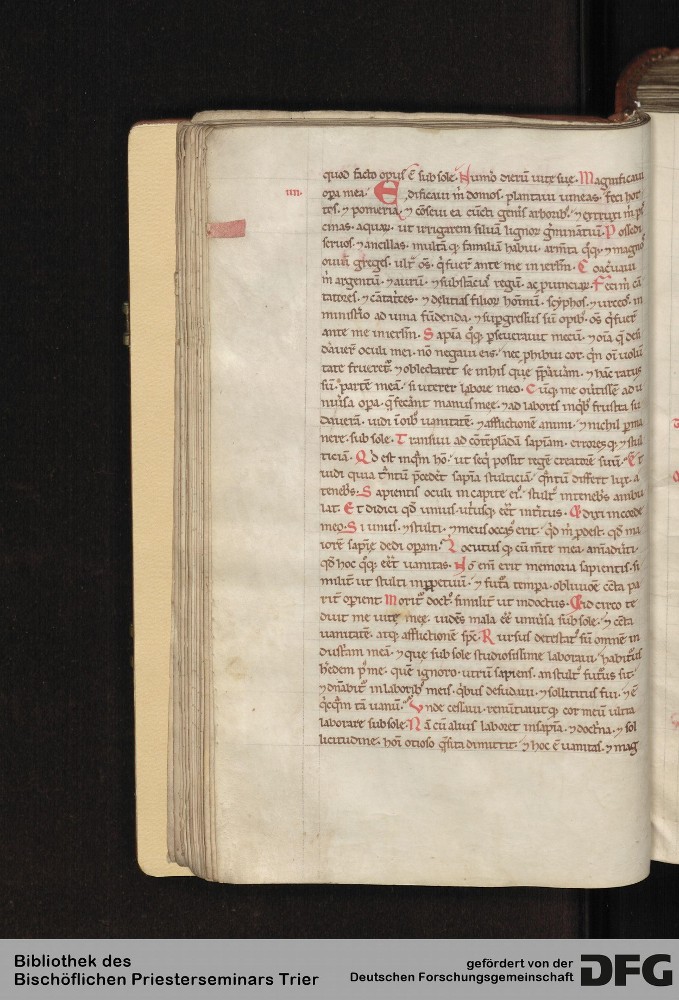 quod facto opus ē sub sole. Numō dierū uitę suę. Magnificaui
.iiii. opa mea. Edificaui m̄ domos. plantaui uineas. feci hor
tos. ⁊ pomeria. ⁊ cōseui ea cūcti genis̄ arboribꝫ. ⁊ extruxi m̄ pis
cinas aquaꝝ. ut irrigarem siluā lignoꝝ gminātiū. Possedi
seruos ⁊ ancillas. multā qꝫ familiā habui. armta qꝫ. ⁊ magnos
ouiū greges. ult̄ os̄. q̄ fuer̄ ante me in ierlm̄. Coaceruaui
m̄ argentū. ⁊ aurū. ⁊ substācias regū. ac puinciaꝝ. Feci m̄ cā
tatores. ⁊ cātat̄ces. ⁊ delitias filioꝝ hōminū. scyphos. ⁊ urceos in
ministio ad uina fūdenda. ⁊ supgressus sū opibꝫ os̄ q̄ fuer̄
ante me in ierlm̄. Sapia qꝫ pseuerauit mecū. ⁊ oīa q̄ desi
dauer̄ oculi mei. nō negaui eis. nec phibui cor. qn̄ oī uolū
tate frueret̄. ⁊ oblectaret se in his que ppauam. ⁊ hāc ratus
sū partē meā. si uterer labore meo. Cūqꝫ me cōutissē ad u
niūsa opa. q̄ fecant manus meę. ⁊ ad labores in qbꝫ frustra su
dauerā. uidi in oibꝫ uanitatē. ⁊ afflictionē animi. ⁊ nichil pma
nere. sub sole. Transiui ad cōtēplādā sapiam. erroresqꝫ. ⁊ stul
ticiā. Qd est inqm̄ hō. ut seqi possit regē creatorē suū. Et
uidi quia tn̄tū pcedet sapia stulticiā. qn̄tū differt lux. a
tenebs̄. Sapientis oculi in capite eiꝰ. stultꝰ in tenebs̄ ambu
lat. Et didici qd̄ unus utiusqꝫ eēt intitus. Et dixi in corde
meo. Si unus. ⁊ stulti. ⁊ meus occasꝰ erit. qd m̄ pdest. qd̄ ma
iorē sapię dedi opam. Locutusqꝫ cū mte mea. aīaduti.
qd̄ hoc qꝫ eēt uanitas. Nō enī erit memoria sapientis. si
milit̄ ut stulti in ppetuū. ⁊ futa tempa. obliuiōe cūcta pa
rit̄ opient. Moritꝰ doctꝰ. similit̄ ut indoctus. Et idcirco te
duit me uitę meę. uidēs mala eē uniūsa sub sole. ⁊ cūcta
uanitatē. atqꝫ afflictionē sps̄. Rursus detestatꝰ sū omnē in
dustam meā. ⁊ que sub sole studiosissime laboraui. habiturus
hedem p me. quē ignoro. utrū sapiens. an stultꝰ futurus sit.
⁊ dn̄abit̄ in laboribꝫ meis. qbus desudaui. ⁊ sollicitus fui. ⁊ ē
qcqm̄ tā uanū. Unde cessaui. renūtiauitqꝫ cor meū ultra
laborare sub sole. Nā cū alius laboret in sapia. ⁊ doctna. ⁊ sol
licitudine. homi otioso qsita dimittit. ⁊ hoc ē uanitas. ⁊ mag
Bibliothek des
Bischöflichen Priesterseminars Trier
gefördert von der
Deutschen Forschungsgemeinschaft
DFG